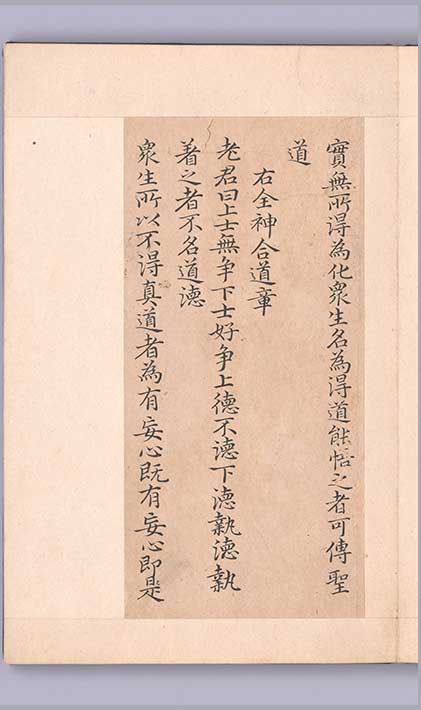 實無所得為化衆生名為得道能悟之者可傳聖
道
右全神合道章
老君曰上士無争下士好争上德不德下德執德執
著之者不名道德
衆生所以不得真道者為有妄心既有妄心即是